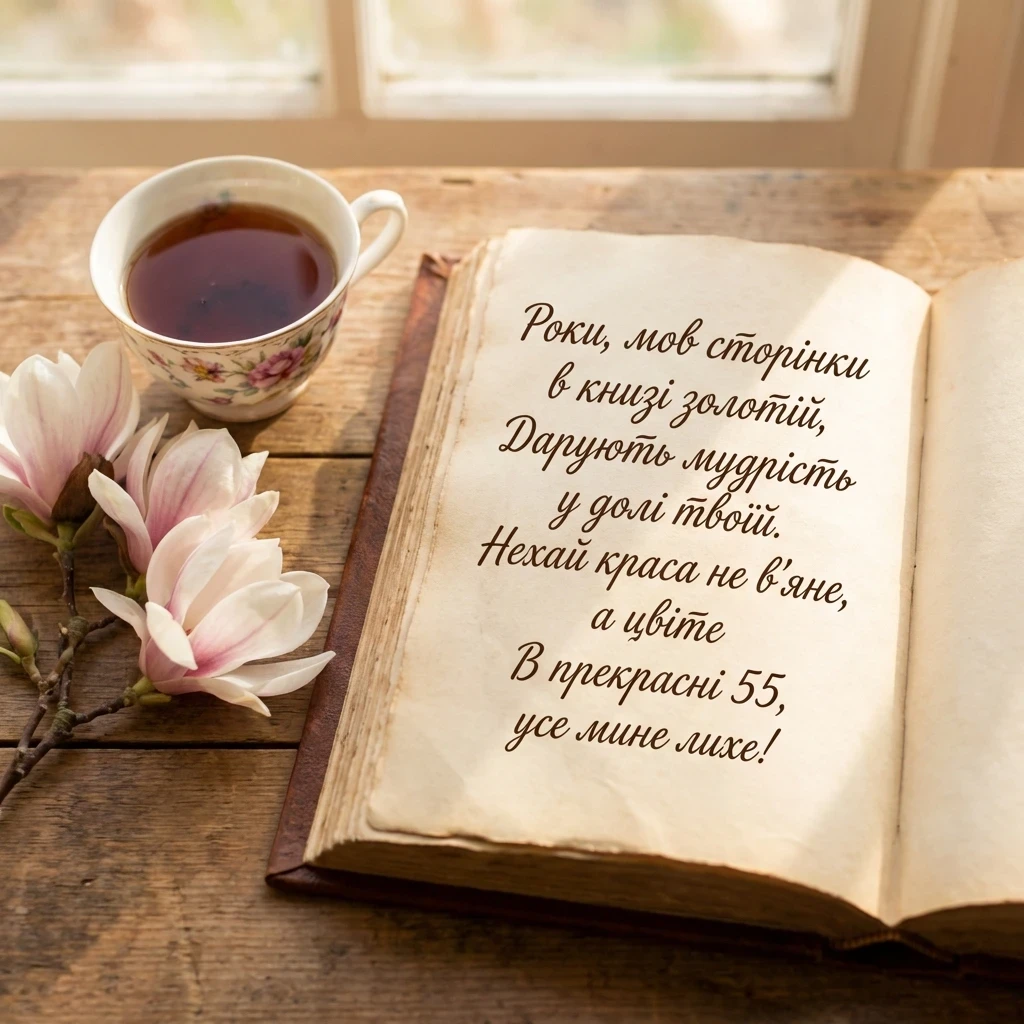 Роки, мов сторінки
в книзі золотій,
Дарують мудрість
у долі твоїй.
Нехай краса не в'яне,
а цвіте
В прекрасні 55,
усе мине лихе!